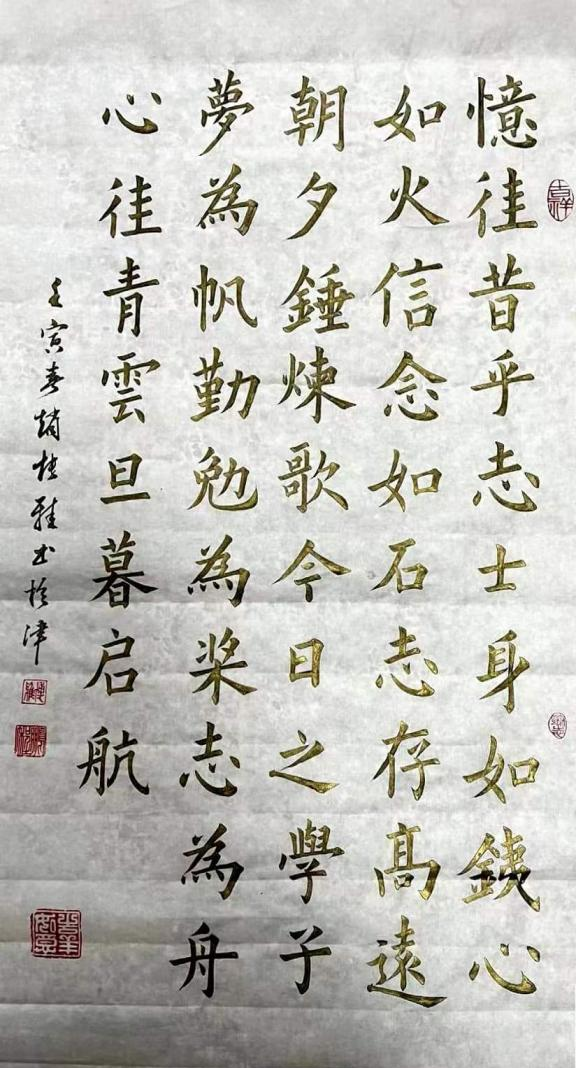 憶往昔乎志士身如銕心
如火信念如石志存髙遠
朝夕錘煉歌今日之學子
夢為帆勤勉為桨志為舟
心往青雲旦暮启航
壬寅春趙桂雅书於津
吉祥
吉羊如意